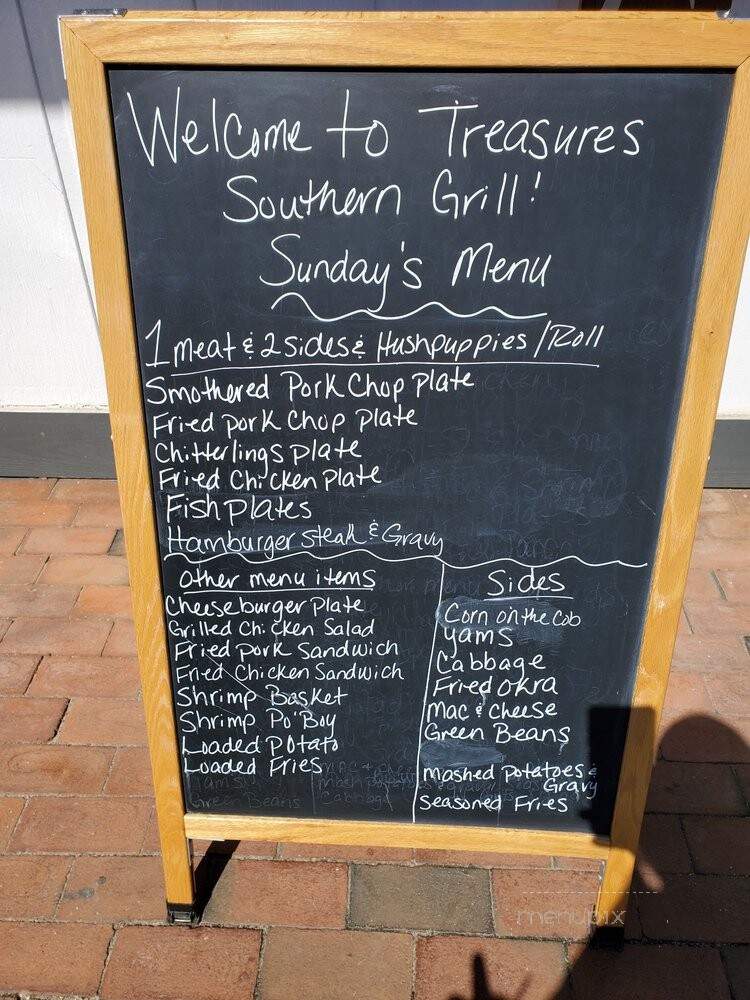 Welcome to Treasures
Southern Grill!
Sunday's Menu
1 meat & 2 sides & Hushpuppies / Roll
Smothered Pork Chop Plate
Fried pork Chop Plate
Chitterlings plate
Fried Chicken Plate
Fish plates
Hamburger Steak & Gravy
other menu items
Cheeseburger Plate
Grilled Chicken Salad
Fried Pork Sandwich
Fried Chicken Sandwich
Shrimp Basket
Shrimp Po'Boy
Loaded Potato
Loaded Fries
Green Beans
Cabbage
Sides
Corn on the cob
yams
Cabbage
Fried Okra
Mac & Cheese
Green Beans
Mashed Potatoes &
Gravy
Seasoned Fries
menupix